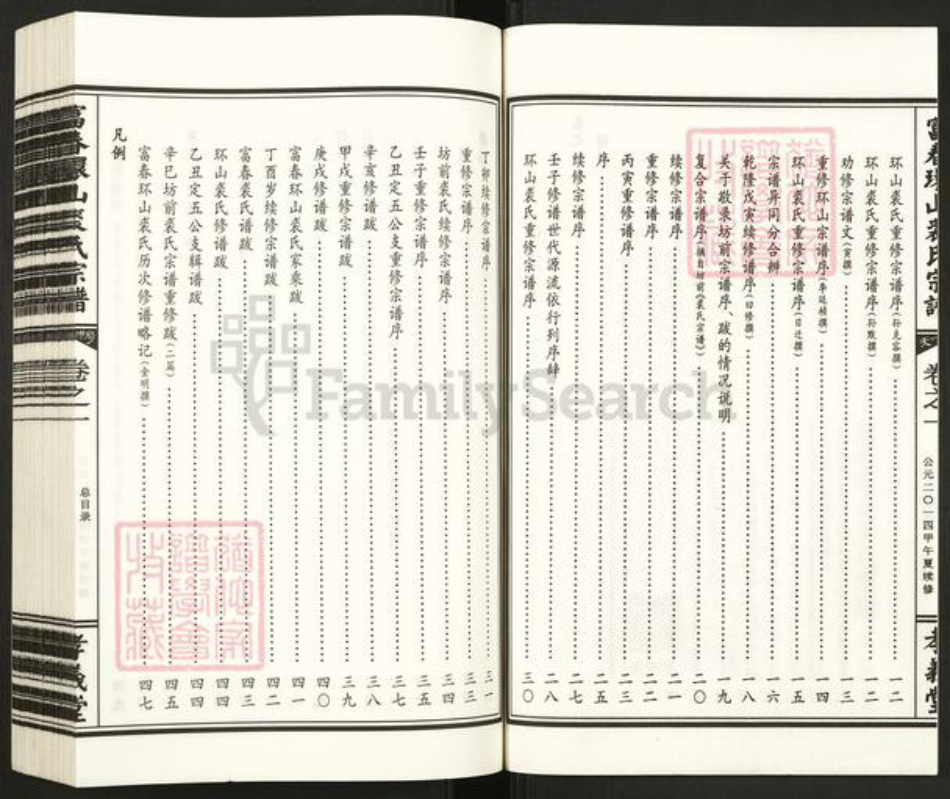 富春环山裘氏宗谱
卷之一
公元二〇一四甲午夏续修
孝义堂
环山裘氏重修宗谱序(孙克容撰)一二
环山裘氏重修宗谱序(孙默撰)一二
劝修宗谱文(寅撰)一三
重修环山宗谱序(李延桢撰)一四
环山裘氏重修宗谱序(日迁撰)一五
宗谱异同分合辨一六
乾隆戊寅续修谱序(曰修撰)一八
关于敬录坊前宗谱序、跋的情况说明一九
复合宗谱序(摘自坊前《裘氏宗谱》)二〇
续修宗谱序二一
重修宗谱序二二
丙寅重修谱序二三
序二五
续修宗谱序二七
壬子修谱世代源流依行列序辞二八
环山裘氏重修宗谱序三〇
丁卯续修宗谱序三一
重修宗谱序三三
坊前裘氏续修宗谱序三四
壬子重修宗谱序三五
乙丑定五公支重修宗谱序三七
辛亥修谱跋三八
甲戌重修宗谱跋三九
庚戌修谱跋四〇
富春环山裘氏家乘跋四一
丁酉岁续修宗谱跋四二
富春裘氏谱跋四三
环山裘氏修谱跋四四
乙丑定五公支辑谱跋四四
辛巳坊前裘氏宗谱重修跋(二篇)四五
富春环山裘氏历次修谱略记(金明撰)四七
凡例
富春环山裘氏宗谱
卷之一
总目录
孝义堂
FamilySearch
谱学会
收藏